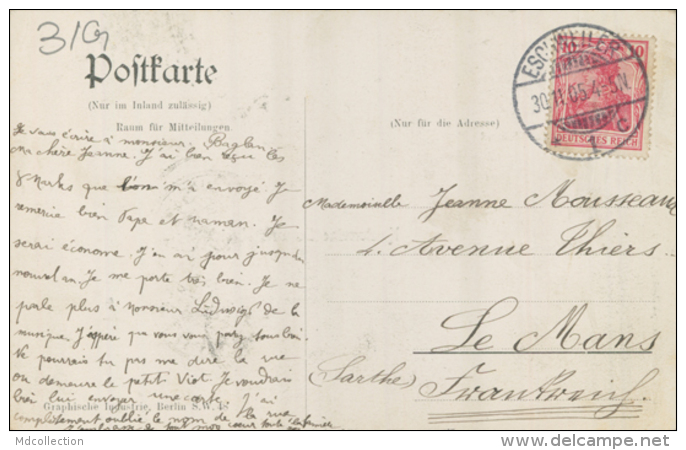 3/G
Postkarte
(Nur im Inland zulässig)
Raum für Mitteilungen.
(Nur für die Adresse)
ESCHWEILER
30.11.06.4-5N
* 1 C
10 10
DEUTSCHES REICH
Je vais écrire à monsieur
Ma chère Jeanne. J'ai bien reçu les
8 Marks que l'on m'a envoyé. Je
remercie bien Papa et maman. Je
serai économe. J'en ai pour jusqu'au
nouvel an. Je me porte très bien. Je ne
parle plus à Monsieur Ludwigs de la
musique. J'espère que vous vous portez tous bien.
Ne pourrais tu pas me dire la rue
où demeure le petit Viot. Je voudrais
bien lui envoyer une carte. J'ai
complètement oublié le nom de la rue
de tout mon cœur toute la famille
Mademoiselle Jeanne Mousseaux
1. Avenue Thiers.
Le Mans
(Sarthe) Frankreich.
Graphische Industrie, Berlin S.W. 48
Mdcollection
www.delcampe.net